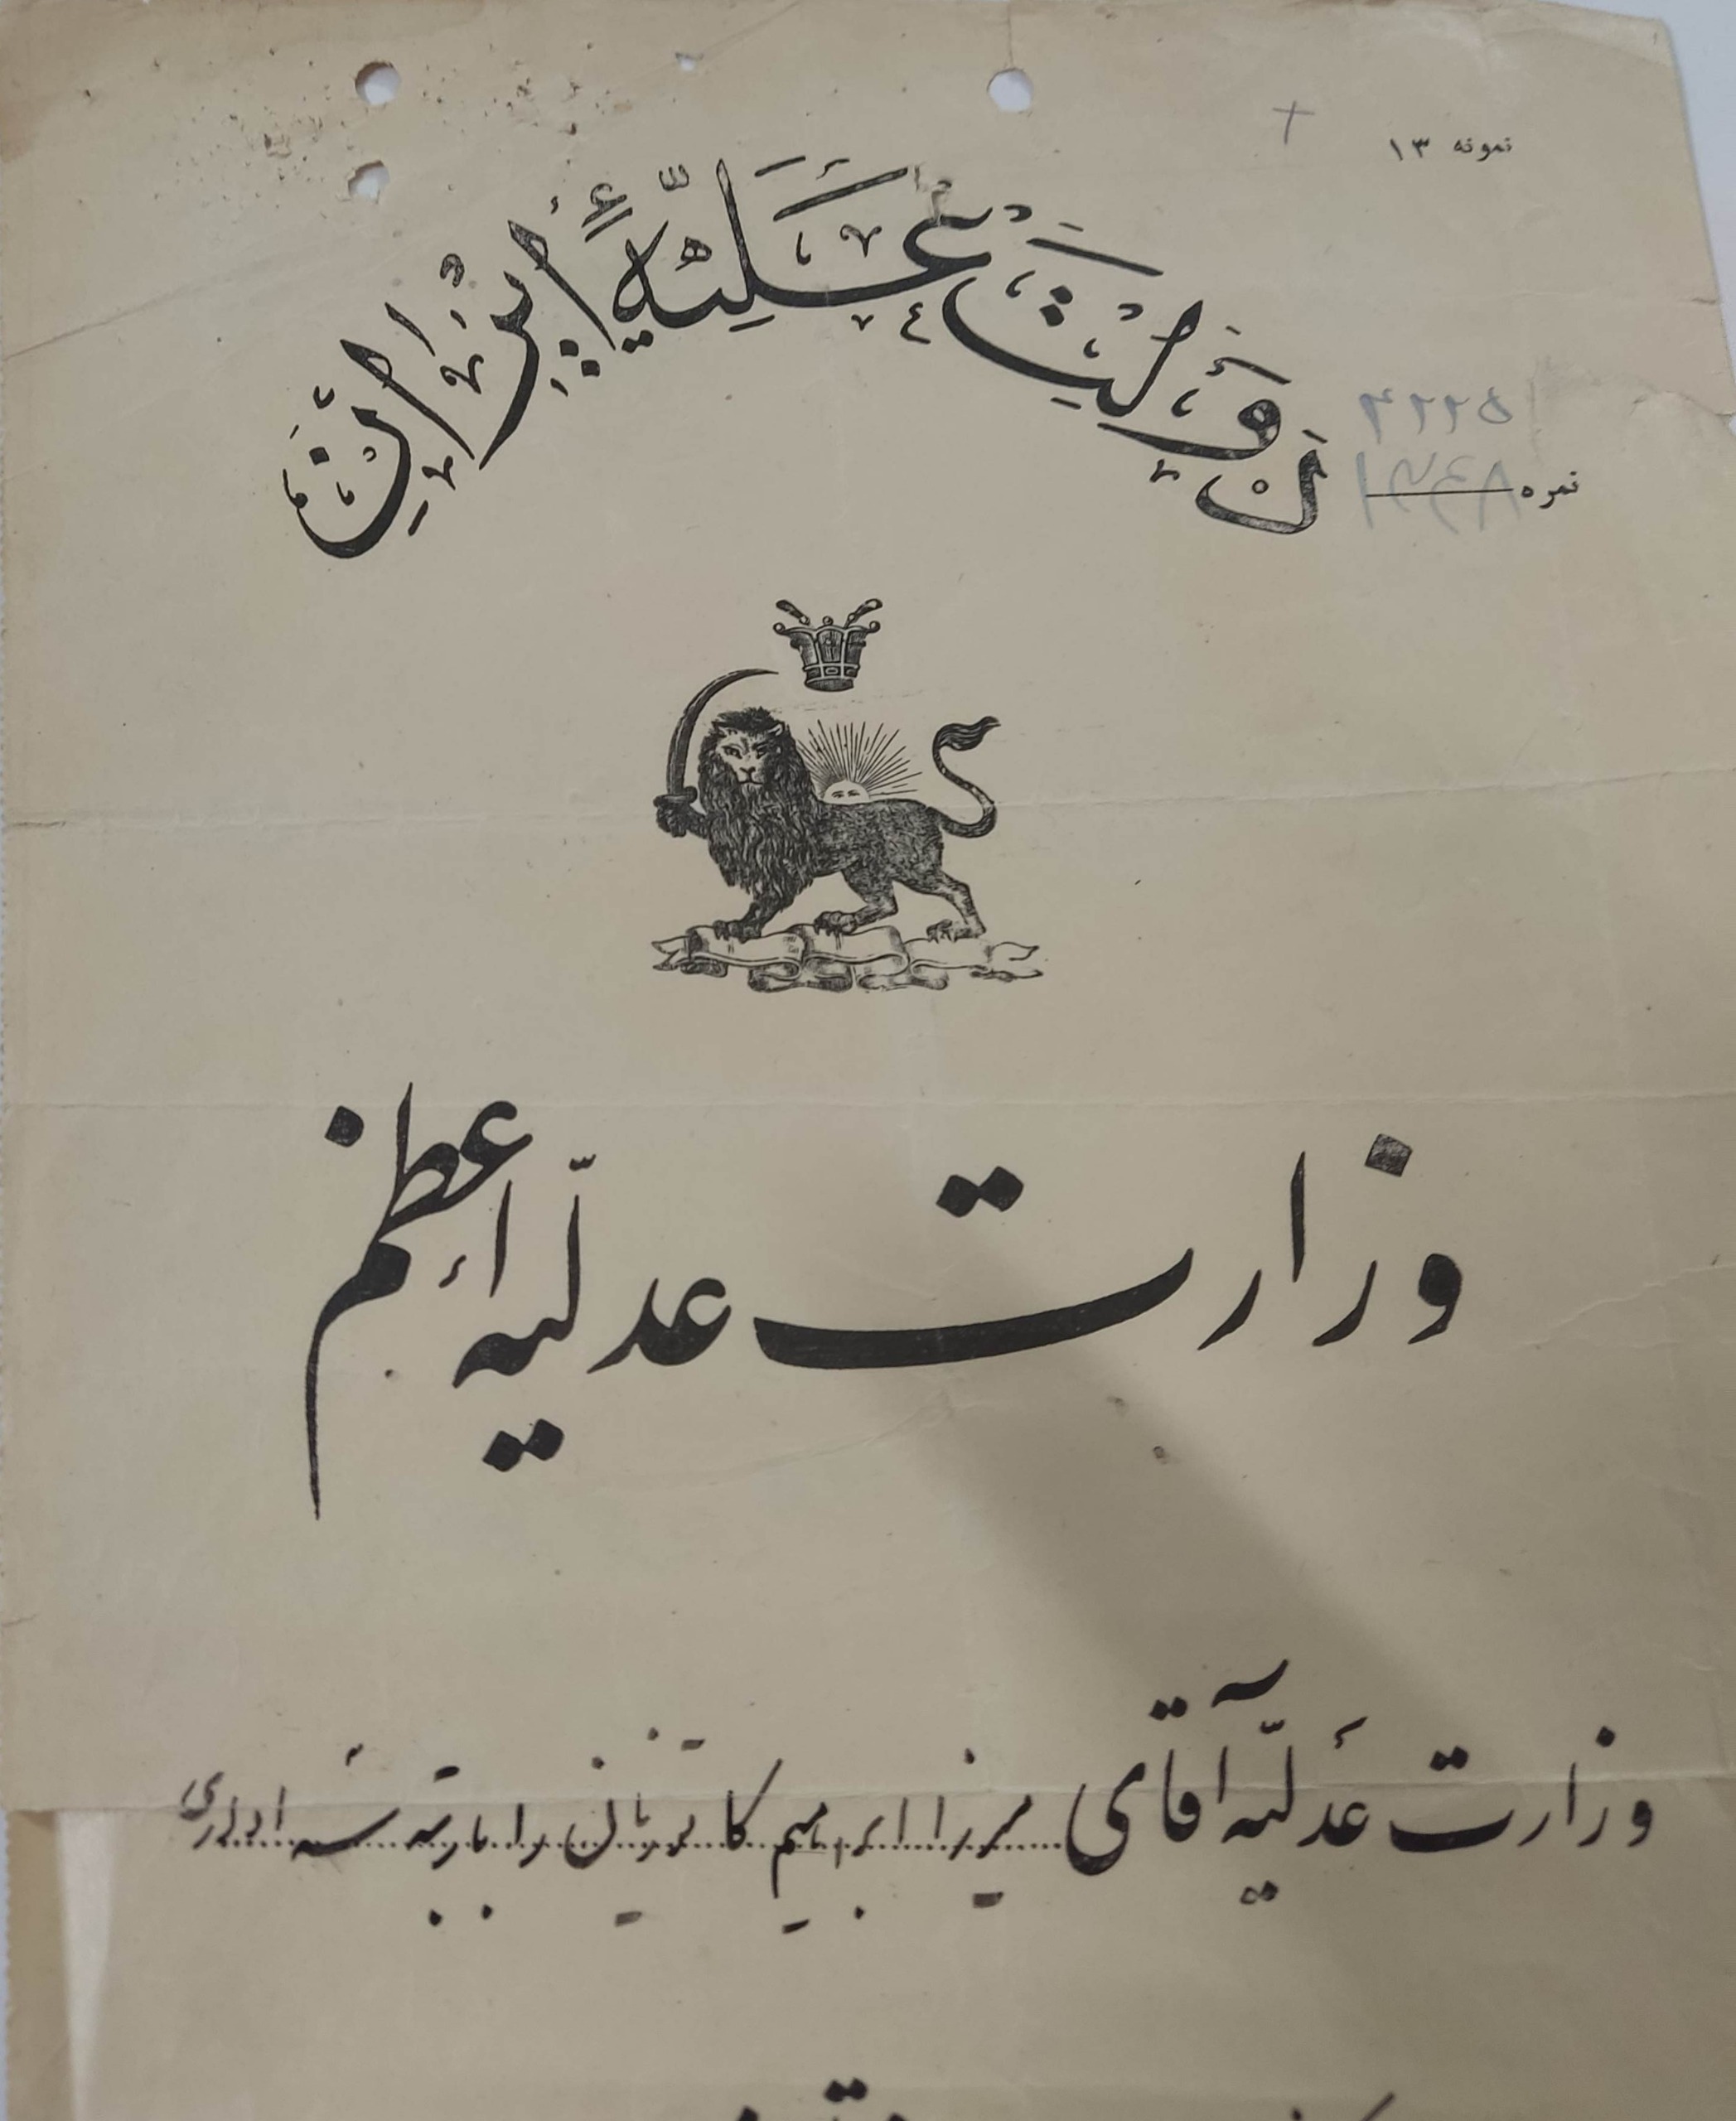 نمونه ۱۳
دولت علیّهٔ ایران
۵۲۲۴
نمره
وزارت عدلیّه اعظم
وزارت عدلیّه آقای میرزا ابرهیم کاتوزیان را برتبه سه اداری